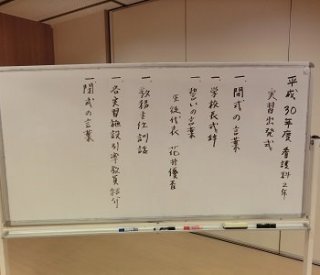 平成30年度 看護科2年
実習出発式
一、開式の言葉
一、学校長式辞
一、誓いの言葉
生徒代表
一、教務主任訓話
一、各実習施設引率教員紹介
一、閉式の言葉